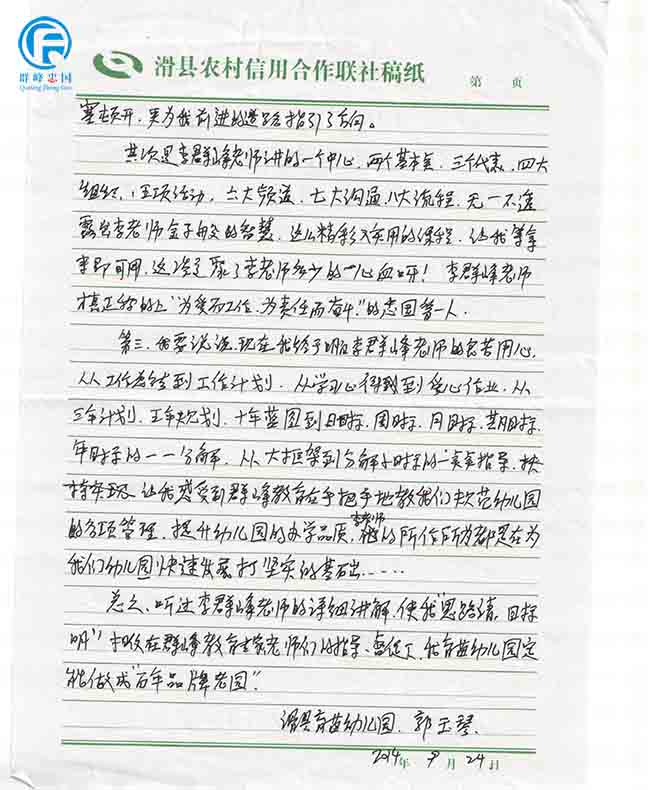 群峰忠国
Qunfeng Zhong Guo
滑县农村信用合作联社稿纸
第 页
塞顿开,更为我前进的道路指引了方向。
其次是李群峰老师讲的一个中心、两个基本点、三个代表、四大
组织、五项活动、六大频道、七大沟通、八大流程,无一不透
露出李老师金子般的智慧,这么精彩又实用的课程,让我等拿
来即可用,这凝聚了李老师多少的心血呀!李群峰老师
才真正称的上"为爱而工作,为责任而奋斗"的忠国第一人.
第三、我要说说,现在我终于明白李群峰老师的良苦用心,
从工作总结到工作计划,从学习心得到爱心作业,从
三年计划、五年规划、十年蓝图到日目标、周目标、月目标、期目标、
年目标的一一分解,从大框架到分解小目标的一一真真指导,扶
持实现,让我感受到群峰教育在手把手地教我们规范幼儿园
的各项管理,提升幼儿园的办学品质,李老师的所作所为都是在为
我们幼儿园快速发展打坚实的基础……
总之,听过李群峰老师的详细讲解,使我"思路清,目标
明",相信在群峰教育专家老师们的指导、督促下,我育苗幼儿园定
能做成"百年品牌老园".
滑县育苗幼儿园、郭玉琴.
2014年 9月 24日